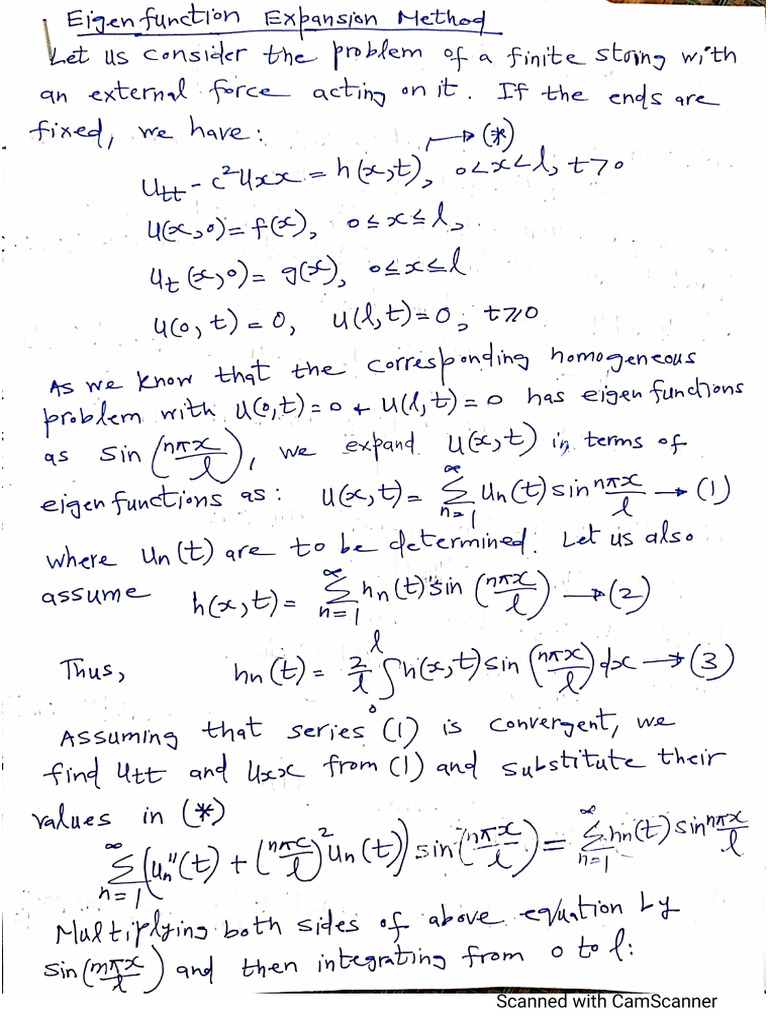 Eigenfunction Expansion Method
Let us consider the problem of a finite string with
an external force acting on it. If the ends are
fixed, we have:
→ (*)
u_tt - c²u_xx = h(x,t), 0<x<l, t>0
u(x,0) = f(x), 0≤x≤l,
u_t(x,0) = g(x), 0≤x≤l
u(0,t) = 0, u(l,t) = 0, t≥0
As we know that the corresponding homogeneous
problem with u(0,t)=0 & u(l,t)=0 has eigen functions
as sin(nπx/l), we expand u(x,t) in terms of
eigen functions as: u(x,t) = ∑_{n=1}^{∞} u_n(t) sin nπx/l → (1)
where u_n(t) are to be determined. Let us also
assume h(x,t) = ∑_{n=1}^{∞} h_n(t) sin (nπx/l) → (2)
Thus, h_n(t) = 2/l ∫_0^l h(x,t) sin (nπx/l) dx → (3)
Assuming that series (1) is convergent, we
find u_tt and u_xx from (1) and substitute their
values in (*)
∑_{n=1}^{∞} (u_n''(t) + (nπc/l)² u_n(t)) sin(nπx/l) = ∑_{n=1}^{∞} h_n(t) sin nπx/l
Multiplying both sides of above equation by
sin(mπx/l) and then integrating from 0 to l:
Scanned with CamScanner